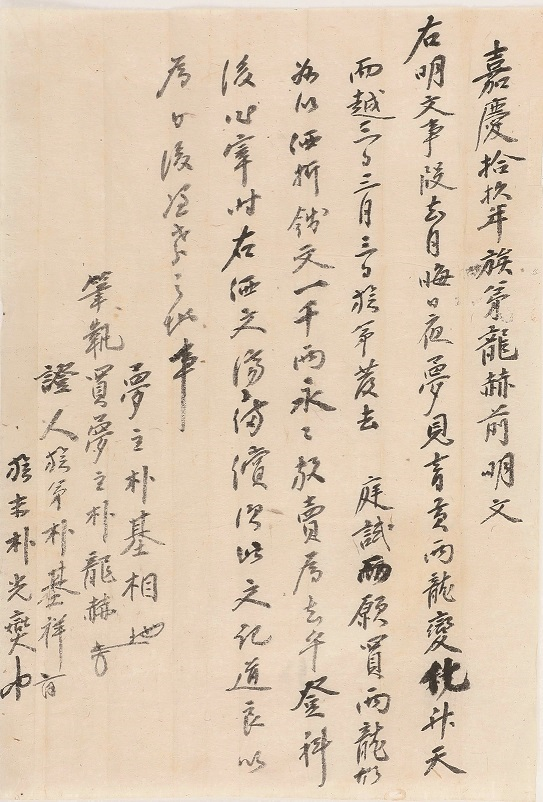 嘉慶拾玖年 族弟龍赫前明文
右明文事段去月晦日夜夢見靑黃兩龍變化升天
而越三日三月三日族弟發去 庭試而願買兩龍故
価折錢文一千兩永〻放賣爲去乎登科
後 右価文 備償次此文記 以
爲日後 之地事
夢主朴基相
筆執買夢主朴龍赫
證人族弟朴基祥
族 朴光